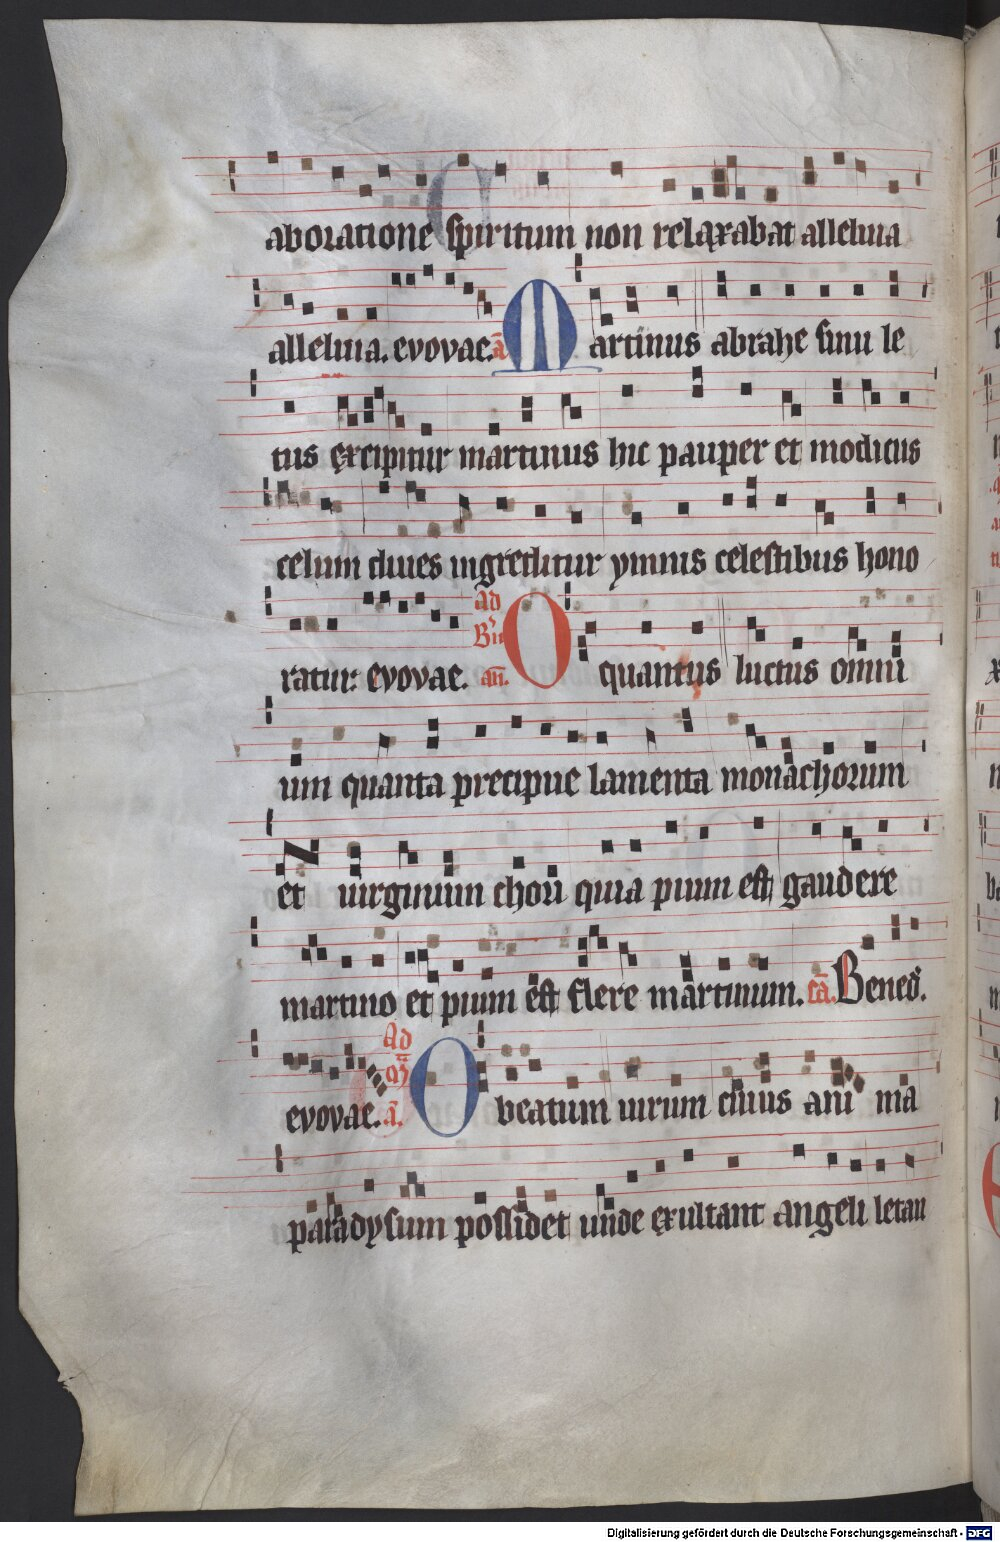 aboratione spiritum non relaxabat alleluia
alleluia. evovae. ā Martinus abrahe sinu le
tus excipitur martinus hic pauper et modicus
celum diues ingreditur ymnis celestibus hono
ratur: evovae. Ad Bn̄ an̄. O quantus luctus omni
um quanta precipue lamenta monachorum
et uirginum chori quia pium est gaudere
martino et pium est flere martinum. cā. Bened̄.
evovae. Ad M̄ ā. O beatum uirum cuius ani ma
paradysum possidet unde exultant angeli letan
Digitalisierung gefördert durch die Deutsche Forschungsgemeinschaft - DFG